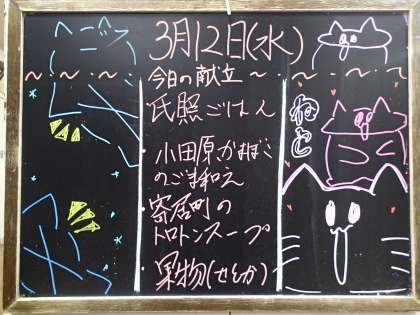 3月12日(水)
～今日の献立～
氏照ごはん
小田原かまぼこ
のごま和え
寄居町の
トロトンスープ
果物(せとか)
ねこ